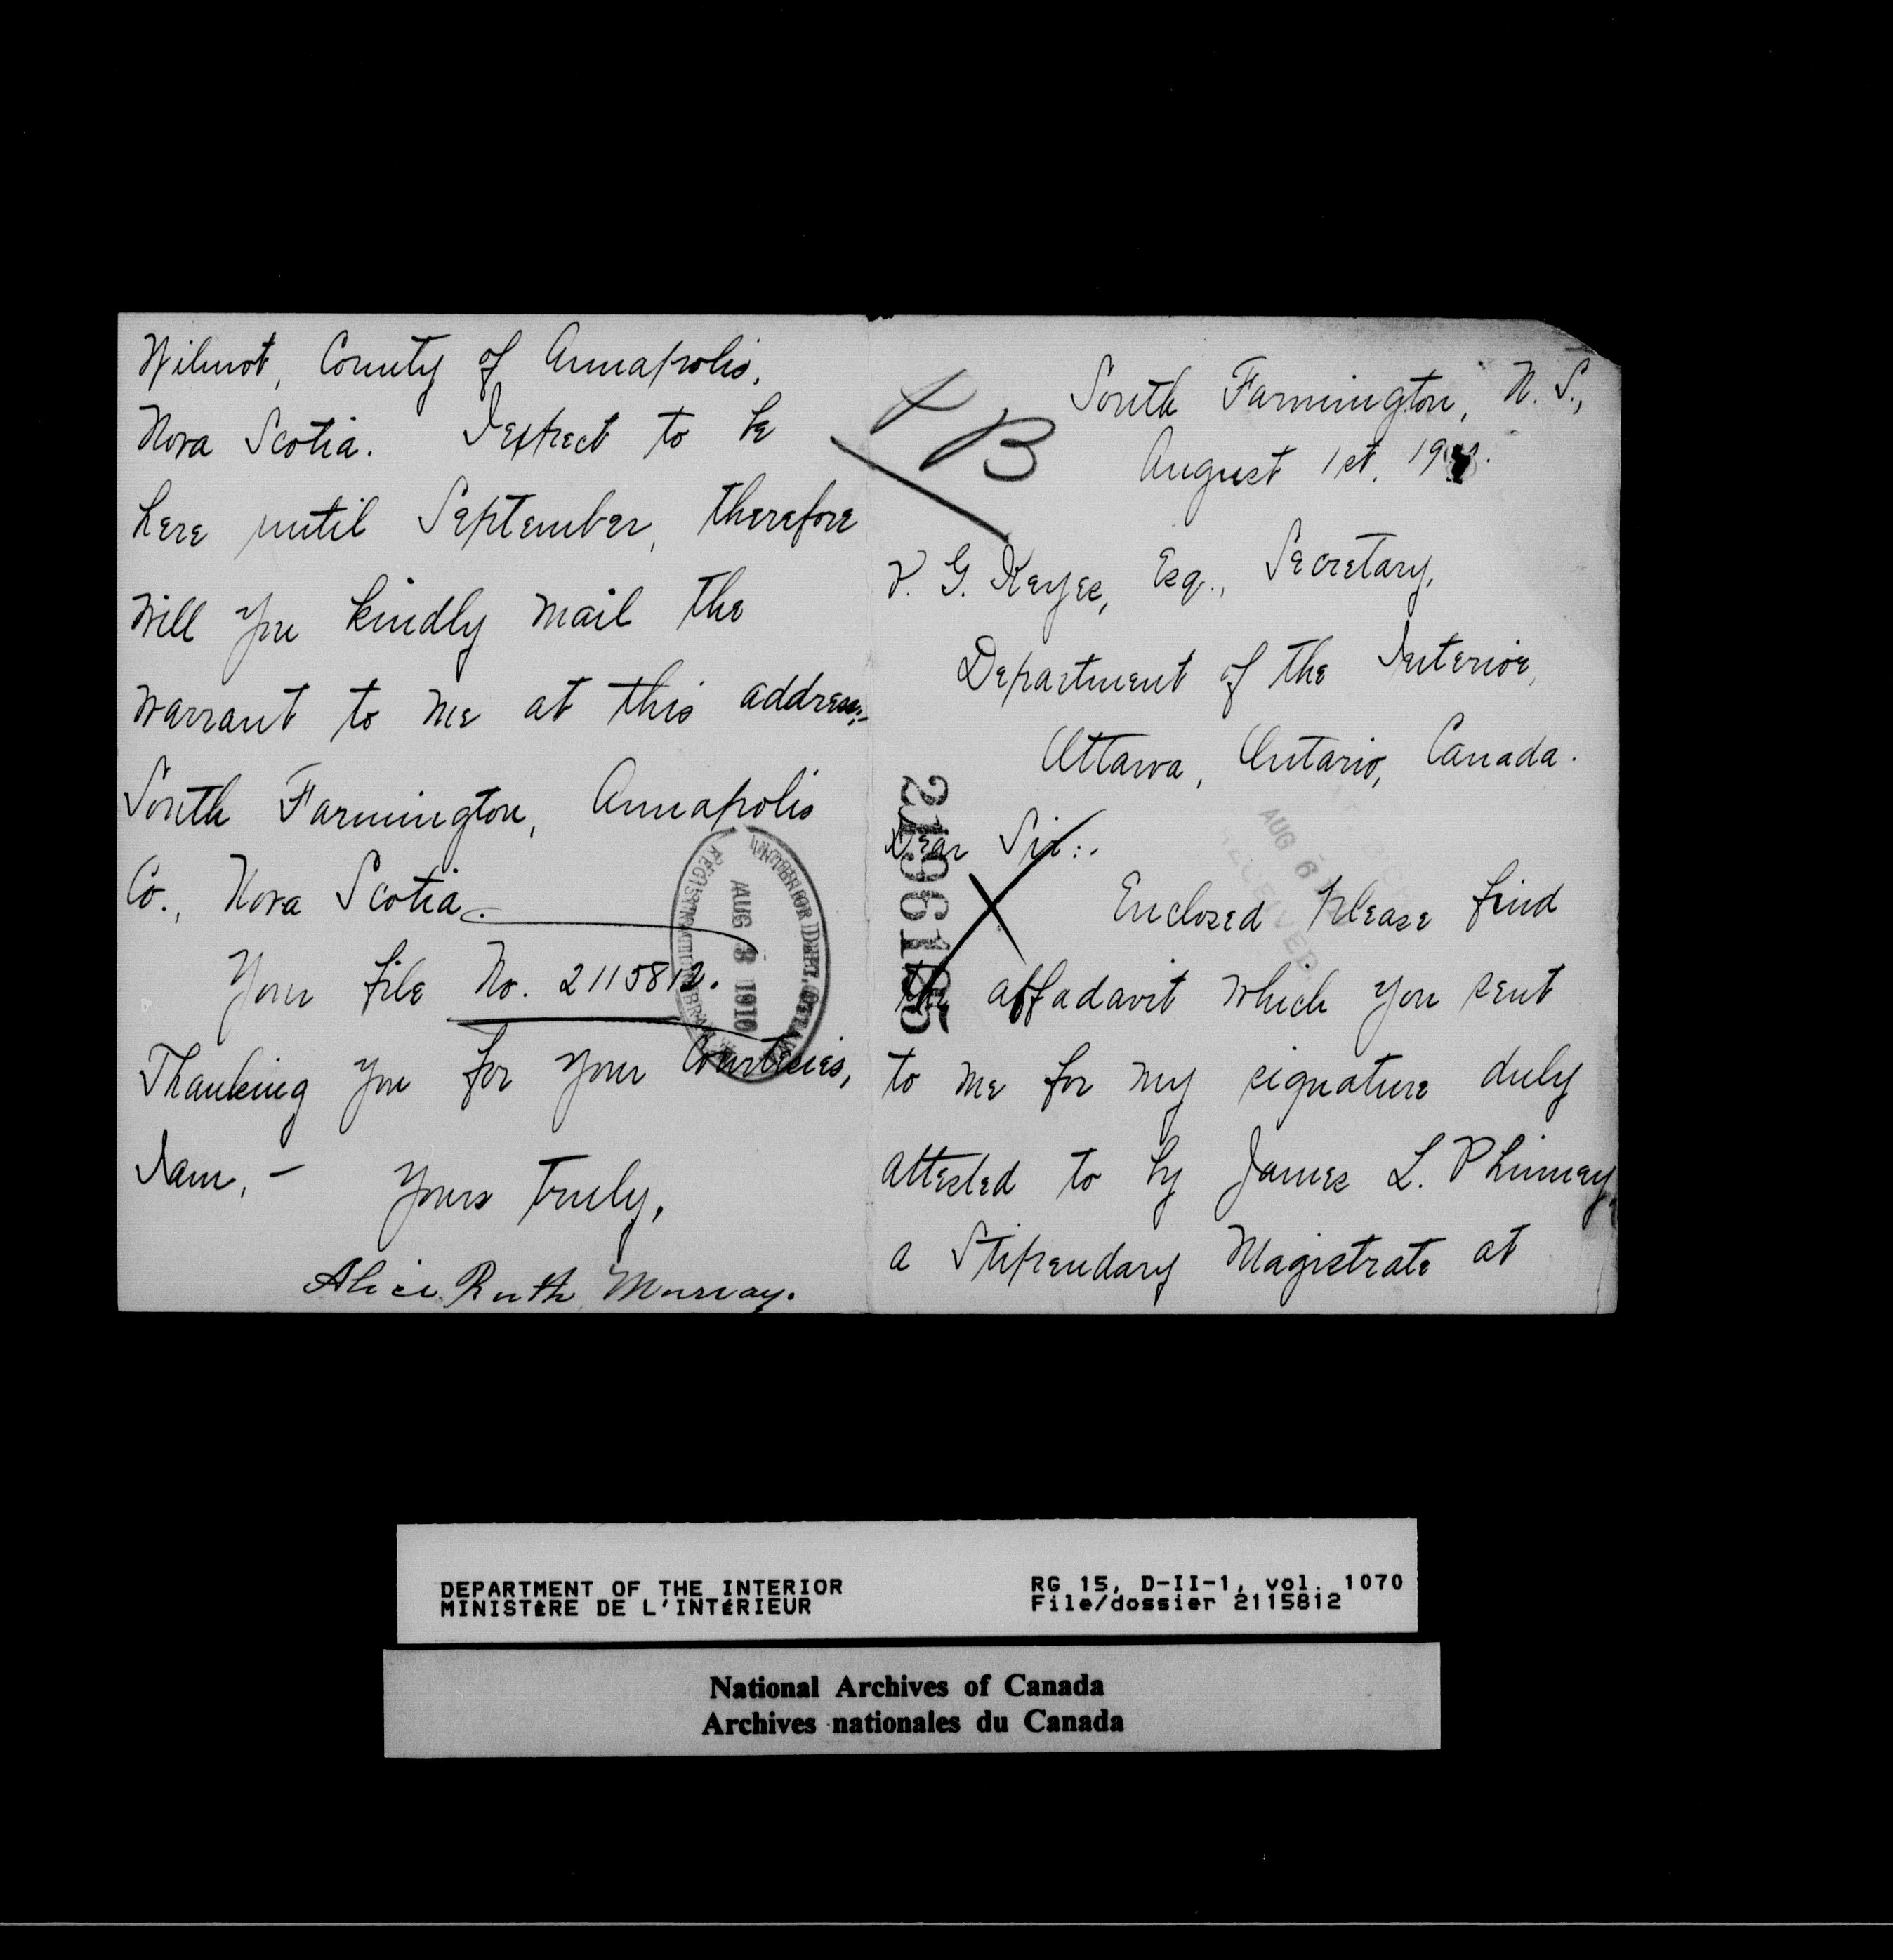 South Farmington, N. S.,
August 1st, 19
P. G. Keyes, Esq., Secretary,
Department of the Interior,
Ottawa, Ontario, Canada.
Dear Sir:.
Enclosed please find
the affadavit which you sent
to me for my signature duly
attested to by James L. Phinney,
a Stipendary Magistrate at
Wilmot, County of Annapolis,
Nova Scotia. I expect to be
here until September, therefore
will you kindly mail the
warrant to me at this address:-
South Farmington, Annapolis
Co., Nova Scotia.
Your file No. 2115812.
Thanking you for your courtesies,
I am, - Yours truly,
Alice Ruth Murray.
B
AUG 3 1910
AUG 6
RECEIVED
DEPARTMENT OF THE INTERIOR
MINISTÈRE DE L'INTÉRIEUR
RG 15, D-II-1, vol. 1070
File/dossier 2115812
National Archives of Canada
Archives nationales du Canada